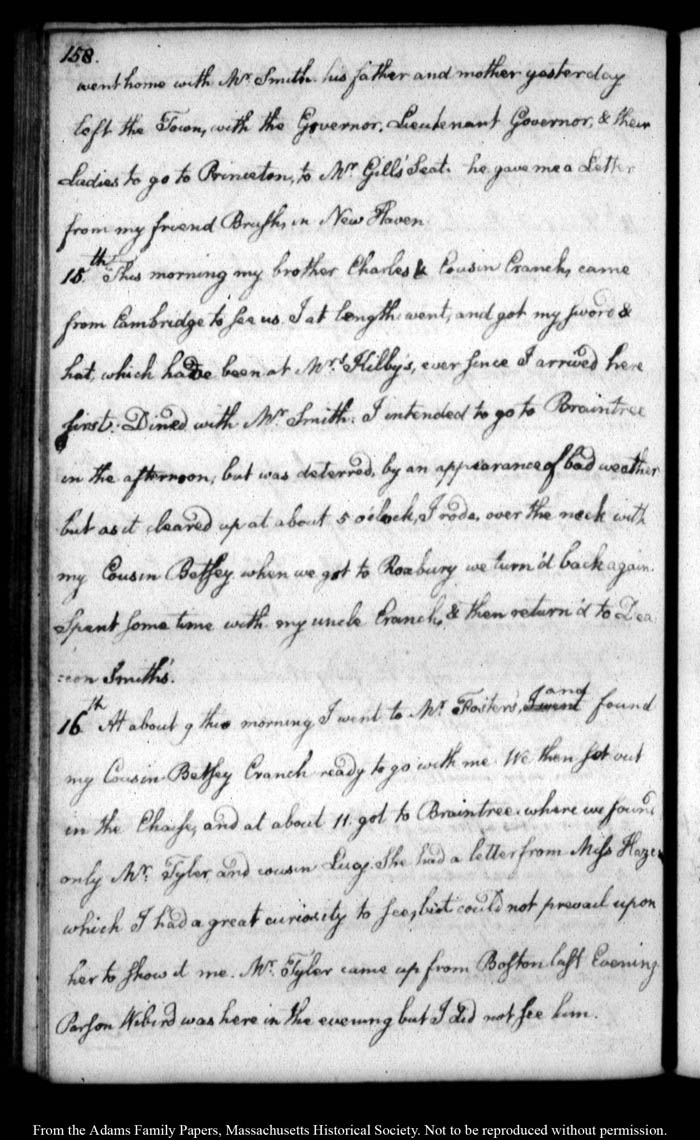 158.
went home with Mr. Smith. his father and mother yesterday
left the Town, with the Governor, Lieutenant Governor, & their
Ladies to go to Princeton, to Mr. Gill's Seat. he gave me a Letter
from my friend Brush, in New Haven.
15th. This morning my brother Charles & Cousin Cranch, came
from Cambridge to see us. I at length went, and got my sword &
hat, which have been at Mrs. Hilby's, ever since I arrived here
first. Dined with Mr. Smith. I intended to go to Braintree
in the afternoon, but was deterred, by an appearance of bad weather
but as it cleared up at about 5 o'clock, I rode, over the neck with
my Cousin Betsey. when we got to Roxbury we turn'd back again.
Spent some time with my uncle Cranch, & then return'd to Dea
:con Smith's.
16th At about 9 this morning I went to Mr. Foster's, I went and found
my Cousin Betsey Cranch ready to go with me. We then set out
in the Chaise, and at about 11. got to Braintree. where we found
only Mr. Tyler and cousin Lucy. She had a letter from Miss Hazen
which I had a great curiosity to see, but could not prevail upon
her to show it me. Mr. Tyler came up from Boston last Evening
Parson Wibird was here in the evening but I did not see him.
From the Adams Family Papers, Massachusetts Historical Society. Not to be reproduced without permission.